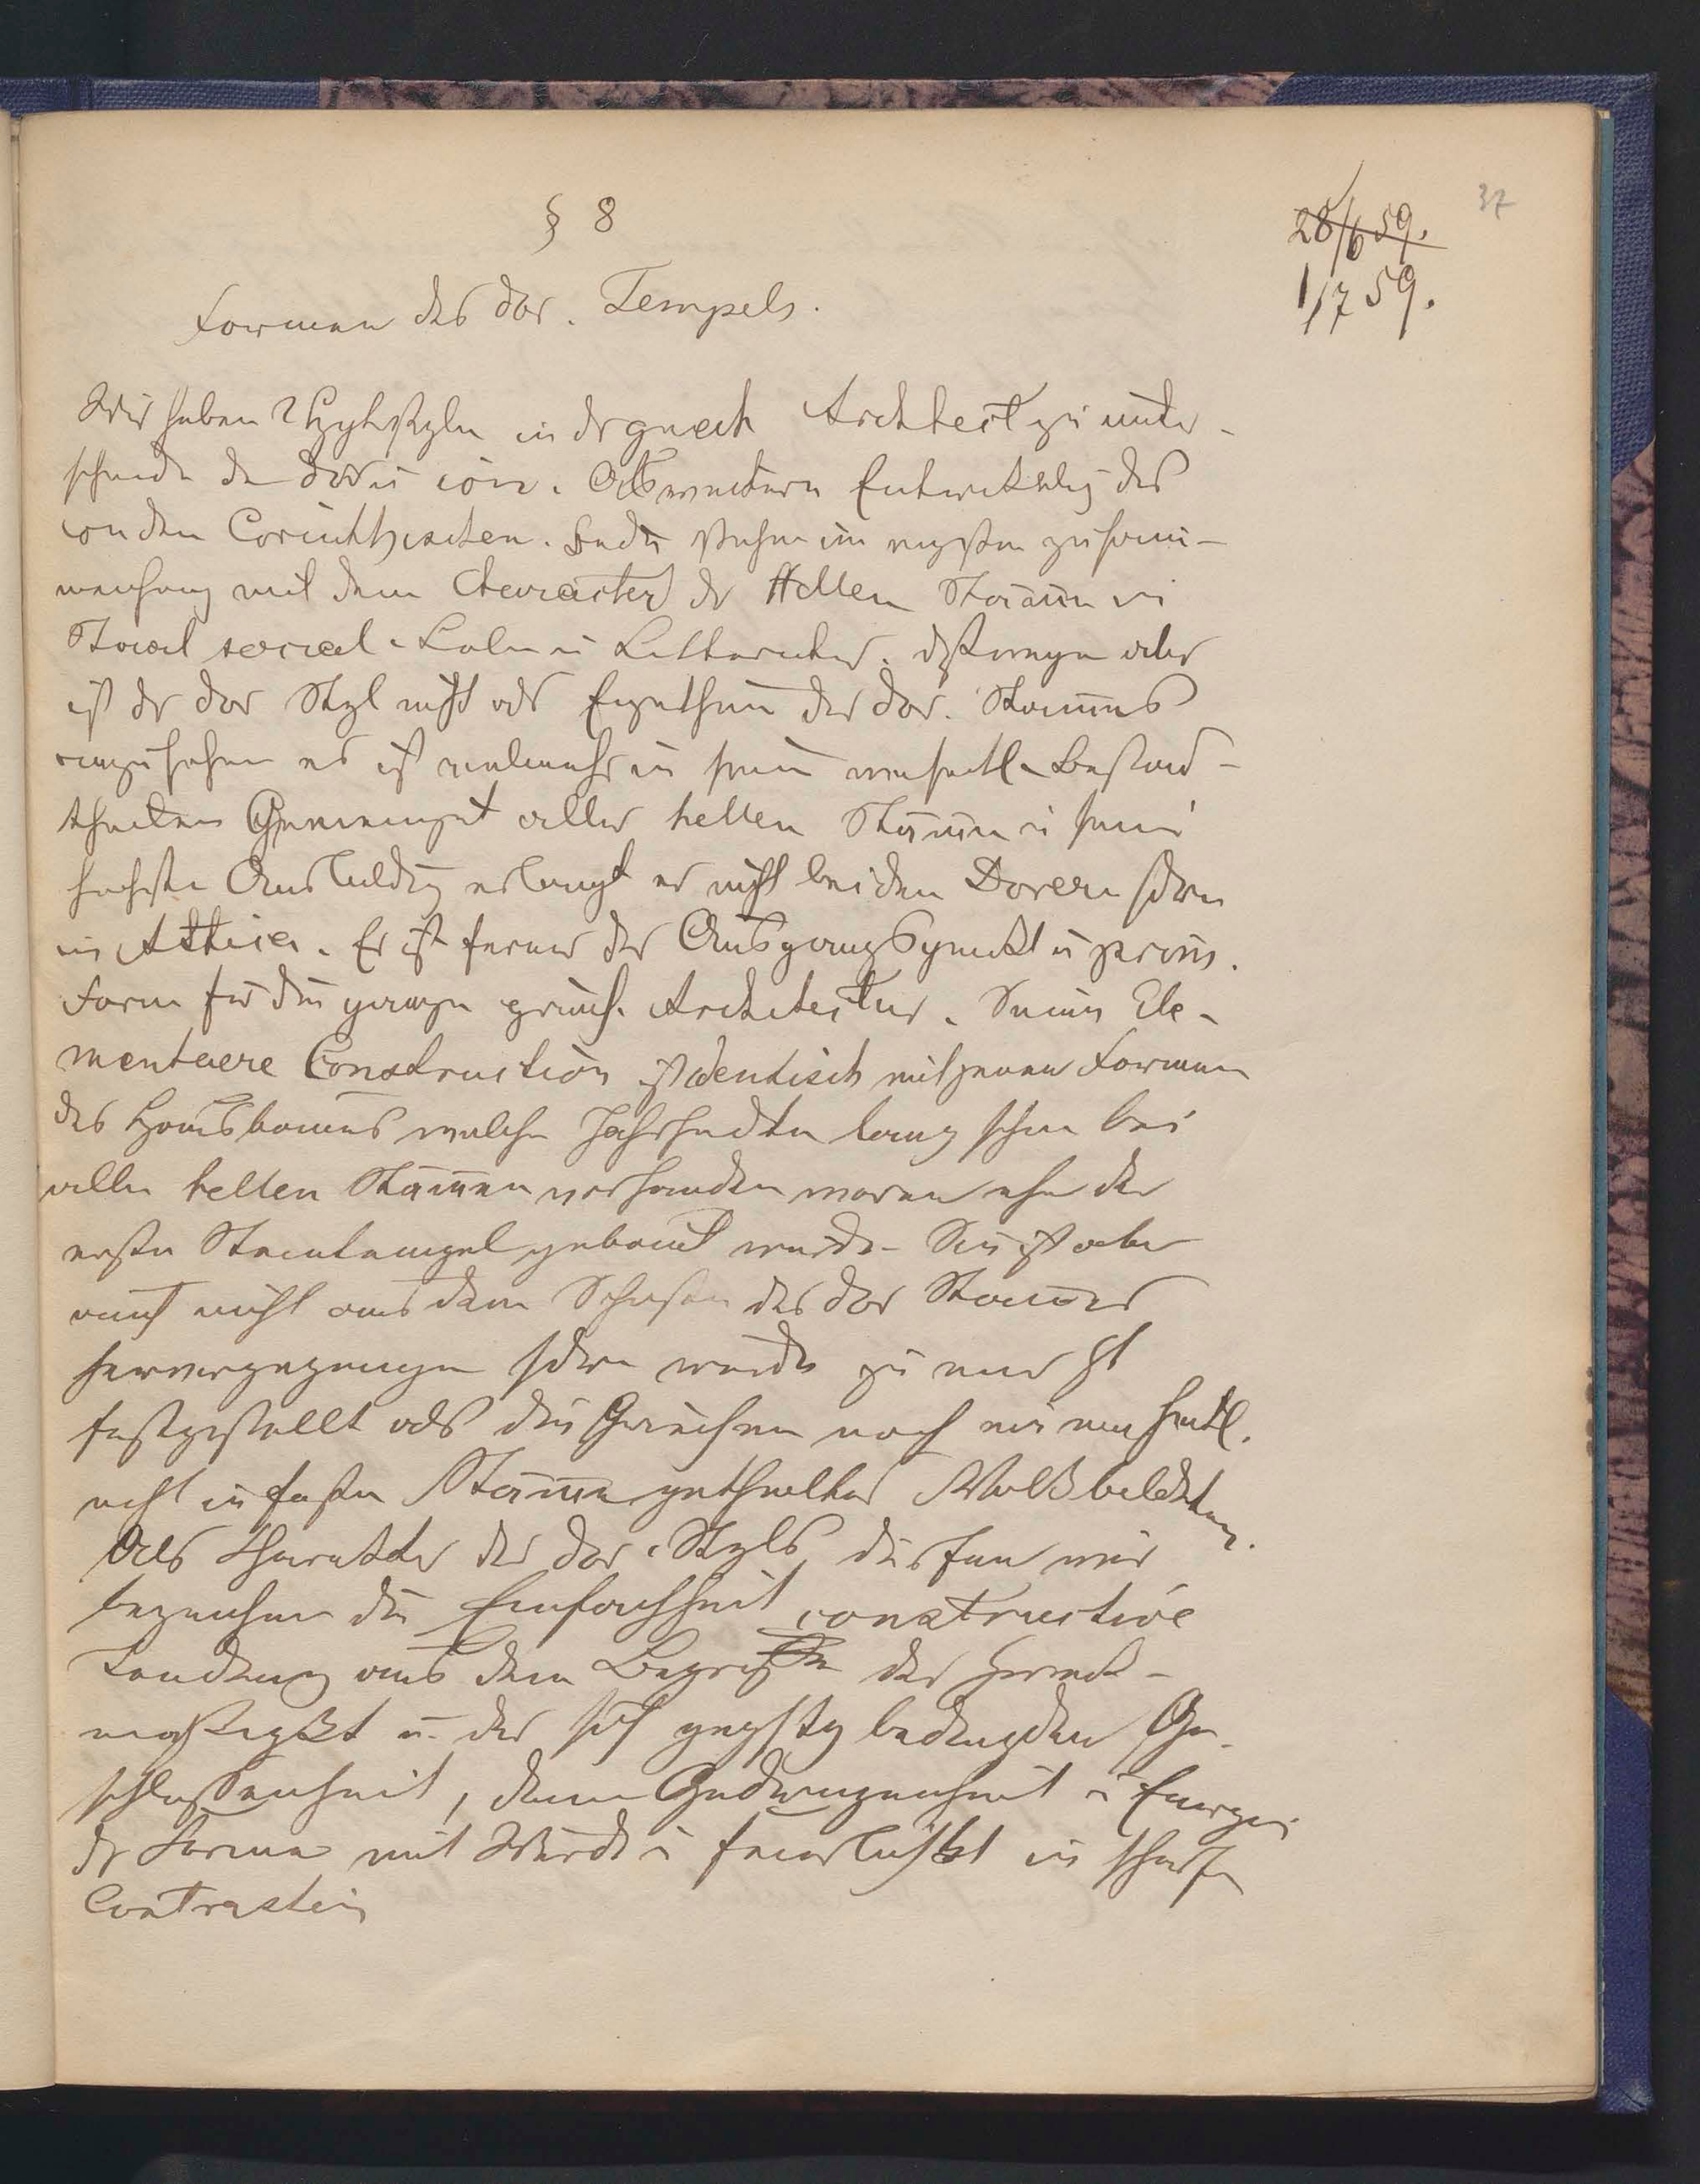 37
28/6 59.
1/7 59.
§ 8
Formen des dor. Tempels.
Wir haben 2 Hptstyle in dr griech Architect zu unter-
scheiden den dor u ion. Als weitere Entwicklg des
ion den Corinthischen. Beide stehen im engsten zusam-
menhang mit dem Character dr Hellen Stämme in
Staat social Leben u Litteratur. deßwegen aber
ist dr dor Styl nicht als Eigenthum des dor. Stammes
anzusehen er ist vielmehr in seinen wesentl. Bestand-
theilen Gemeingut aller hellen Stämme u seine
höchste Ausbildg erlangt er nicht bei den Dorern sdrn
in Attica. Er ist ferner der Ausgangspunkt u
Form für die ganze griech. Architectur. Seine Ele-
mentaere Construction ist identisch mit jenen Formen
des Hausbaues welche Jahrhundte lang schon bei
allen hellen Stämmen vorhanden waren ehe der
erste Steintempel gebaut wurde. Sie ist aber
auch nicht aus dem des dor Stammes
hervorgegangen sdrn wurde zu einer Zt
festgestellt als die Griechen noch ein wesentl.
nicht in feste Stämme getheiltes Volk bildeten.
Als Charakter des dor. Styls dürfen wir
bezeichnen die Einfachheit constructive
Tendenz aus dem Begriffe der Zweck-
mäßigkt u. der sich gegstg bedingden Ge-
schlossenheit, dann Gedrungenheit u Energie
dr Formen mit Würde u Feierlichkt in scharfen
Contrasten